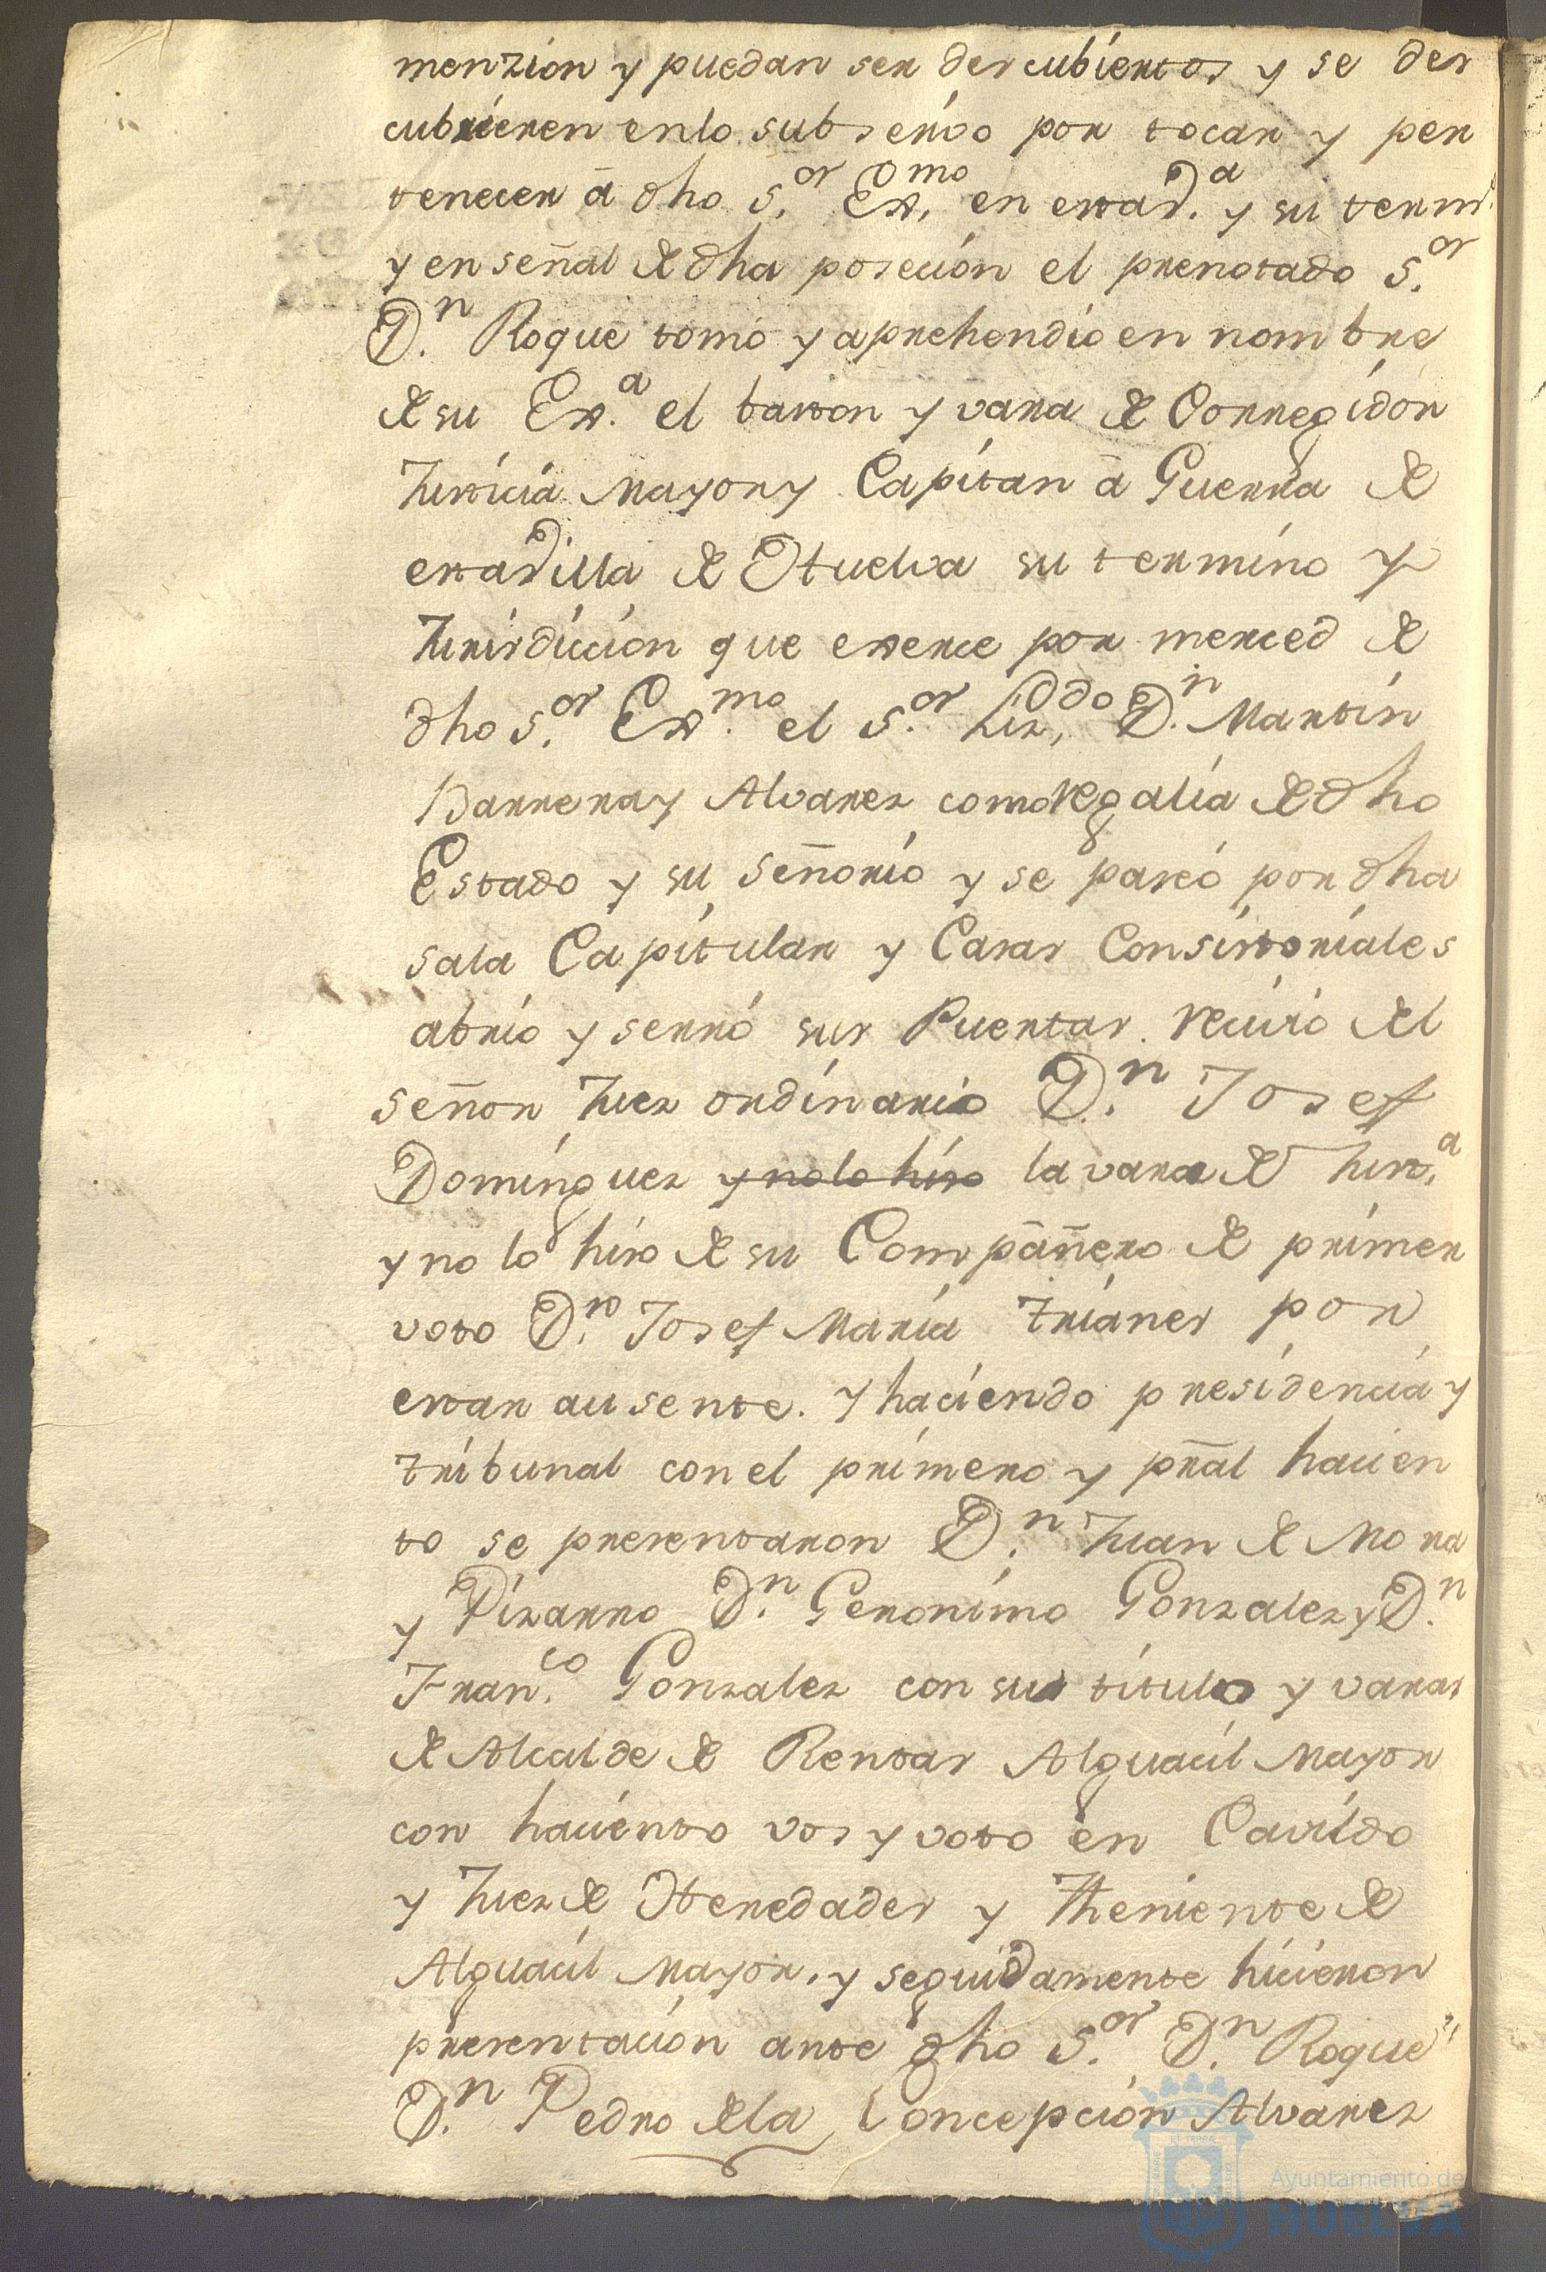 menzion y puedan ser descubiertos y se des
cubrieren en lo subsesivo por tocar y per
tenecer â dho S.or Ex.mo en esta V.a y su term.
y en señal de dha posecion el prenotado S.or
D.n Roque tomó y aprehendio en nombre
de su Ex.a el baston y vara de Corregidor
Justicia Mayor y Capitan â Guerra de
esta Villa de Huelva su termino y
Jurisdiccion que exerce por merced de
dho S.or Ex.mo el S.or Liz.do D.n Martin
Barrera y Alvarez como regalia de dho
Estado y su señorio y se paseó por dha
sala Capitular y Casas Consistoriales
abrio y serró sus Puertas recivio del
señor Juez ordinario D.n Josef
Dominguez y no lo hiso la vara de Just.a
y no lo hiso de su Compâñero de primer
voto D.n Josef Maria Trianes por
estar ausente. y haciendo presidencia y
tribunal con el primero y pral hacien
to se presentaron D.n Juan de Mora
y Pizarro D.n Geronimo Gonzalez y D.n
Fran.co Gonzalez con su titulo y varas
de Alcalde de Rentas Alguacil Mayor
con haciento vos y voto en Cavildo
y Juez de Heredades y Theniente de
Alguacil Mayor, y seguidamente hicieron
presentacion ante dho S.or D.n Roque
D.n Pedro de la Concepcion Alvarez
Ayuntamiento de
HUELVA